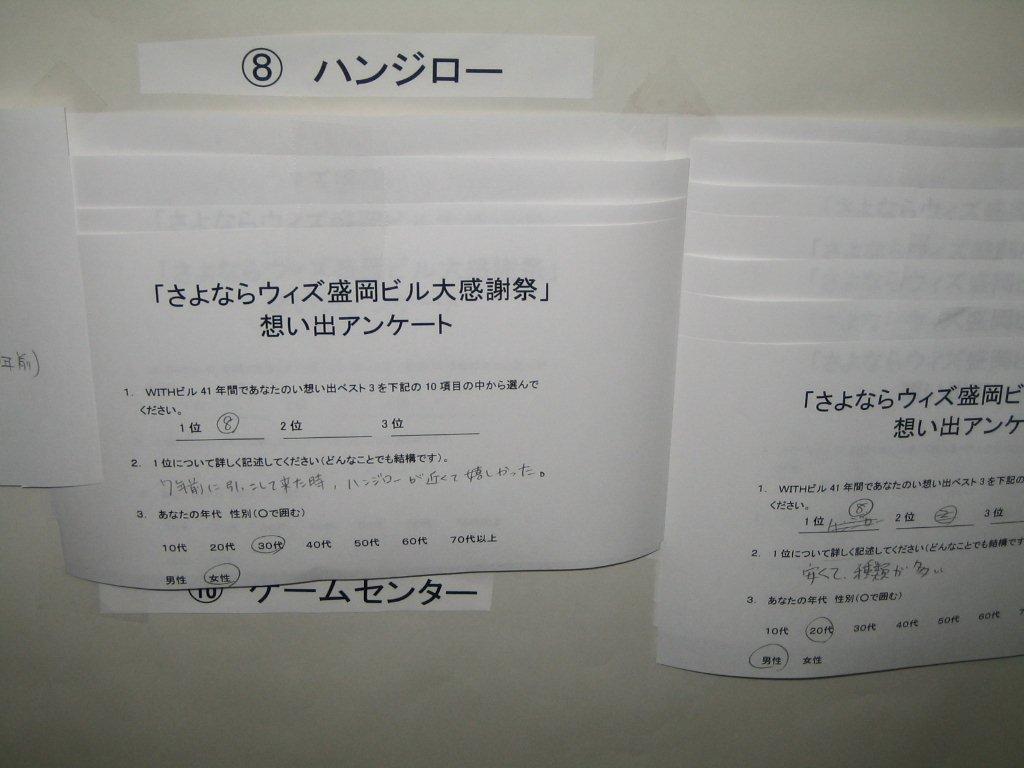 ⑧ ハンジロー
年前)
「さよならウィズ盛岡ビル大感謝祭」
想い出アンケート
1. WITHビル 41 年間であなたのい想い出ベスト 3 を下記の 10 項目の中から選んで
ください。
1 位 ⑧ 2 位 3 位
2. 1 位について詳しく記述してください(どんなことでも結構です)。
7年前に引っこして来た時、ハンジローが近くて嬉しかった。
3. あなたの年代 性別(〇で囲む)
10代 20代 30代 40代 50代 60代 70代以上
男性 女性
⑩ ゲームセンター
「さよならウィズ盛岡ビ
想い出アンケ
1. WITHビル 41 年間であなたのい想い出ベスト 3 を下記の
ください。
1 位 ⑧ 2 位 ② 3 位
2. 1 位について詳しく記述してください(どんなことでも結構です
安くて、種類が多い
3. あなたの年代 性別(〇で囲む)
10代 20代 30代 40代 50代 60代 7
男性 女性